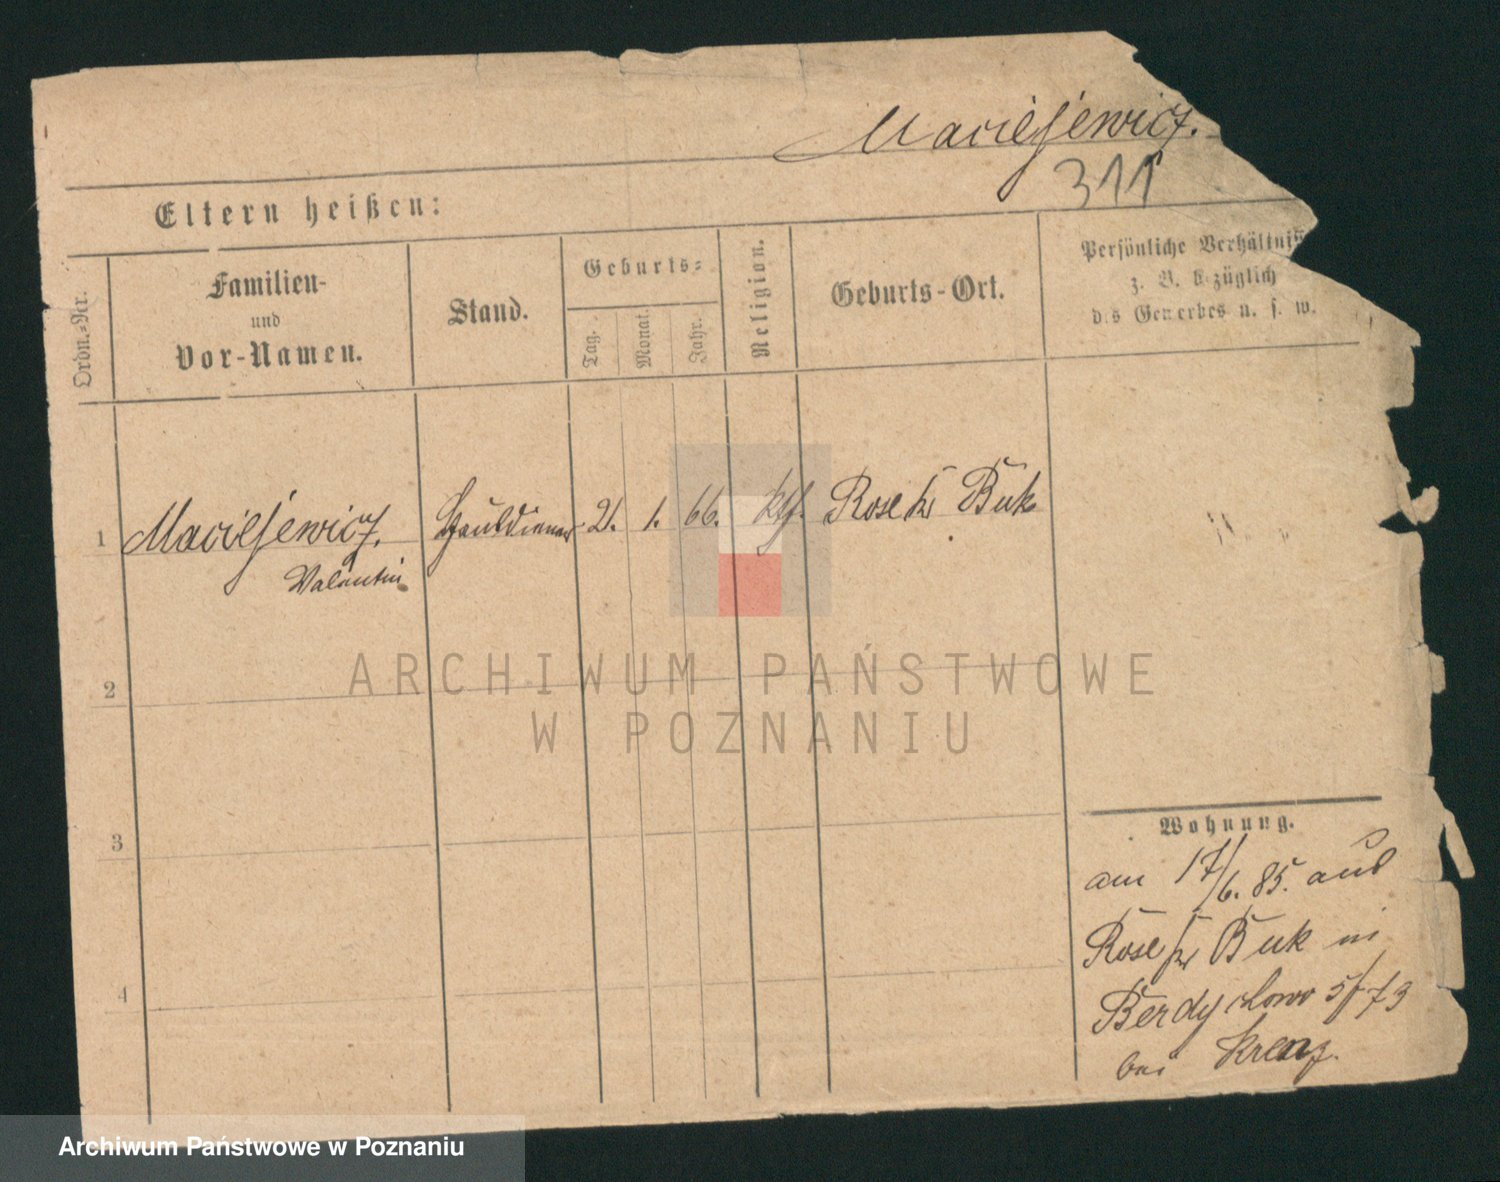 MacielJewicz.
311
Eltern heißen:
Ordn.-Nr.
Familien-
und
Vor-Namen.
Stand.
Geburts-
Tag.
Monat.
Jahr.
Religion.
Geburts-Ort.
Persönliche Verhältnis
z. B. bezüglich
des Gewerbes u. s. w.
1 Macieljewicz, 2. 1. 66. ktl. Rose Kr Buk
Valentin
2
3
4
Wohnung.
am 17/6. 85. aus
Rose Kr Buk in
Berdychowo 5/73
bei Krenz.
ARCHIWUM PAŃSTWOWE
W POZNANIU
Archiwum Państwowe w Poznaniu